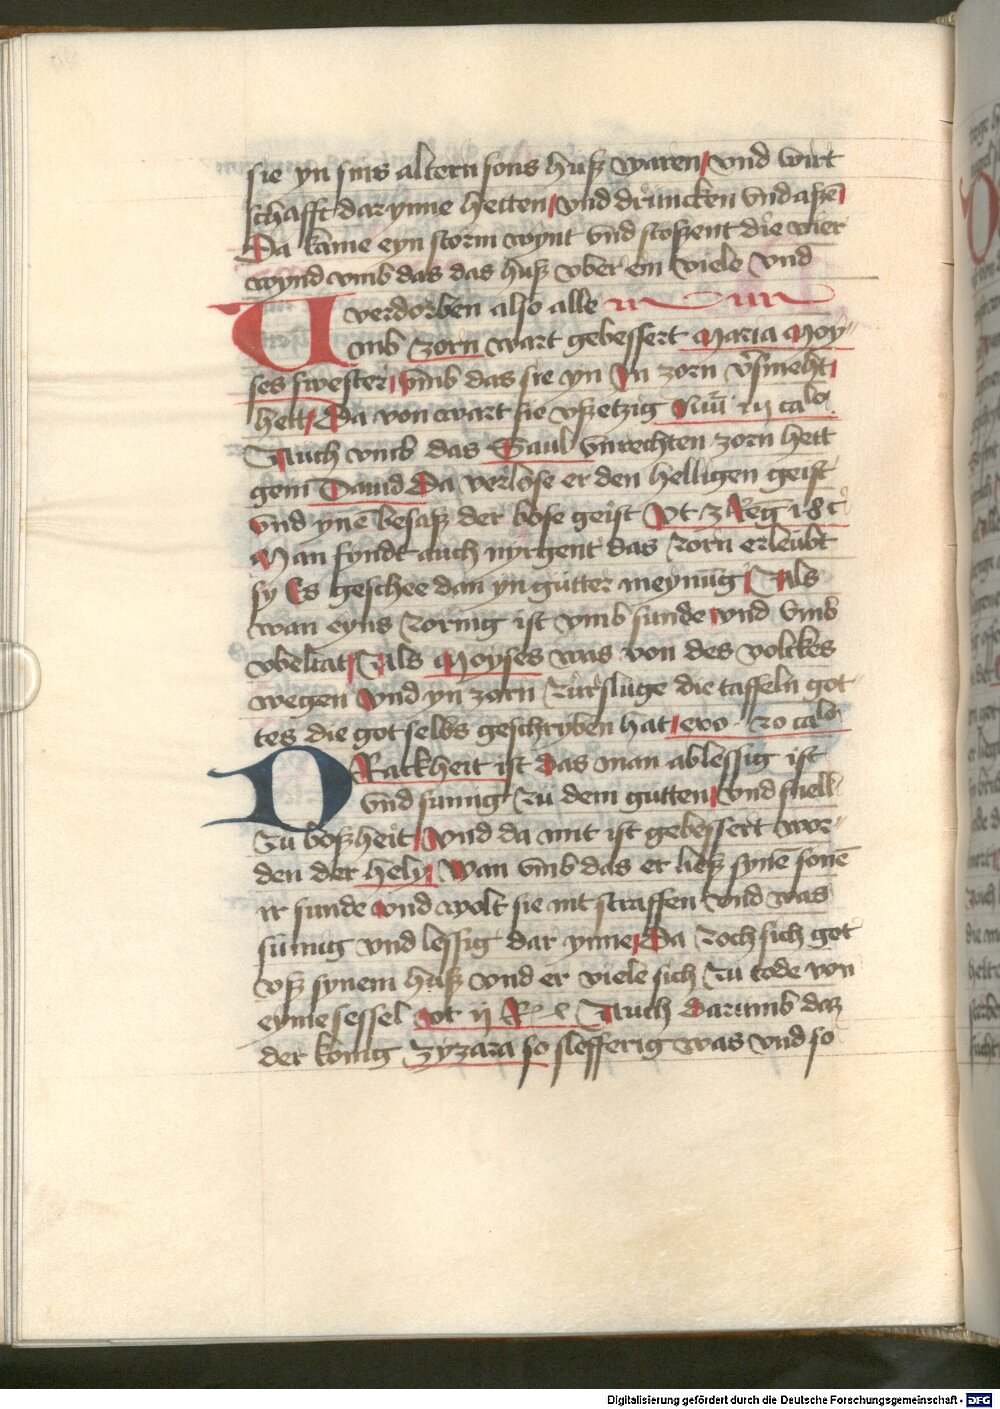 sie yn sins altern sons husz waren / vnd wirt
schafft dar ynne hetten / vnd druncken vnd aszē
Da kame eyn storm wynt vnd stoszent die vier
wynd vmb das das husz vber ein viele vnd
verdorben also alle
Vmb zorn wart gebessert Maria Moy-
ses swester / vmb das sie yn In zorn v'smeht
hett / Da von wart sie vszetzig Nūi xij calo
Auch vmb das Saul vnrechten zorn hett
gem Dauid Da verlose er den helligen geist
vnd ynē besasz der bose geist Vt z Reg
Man fyndt auch nyrgent das zorn erleubt
sy Es geschee dan yn gutter meynūg / Als
wan eyns zornig ist vmb sunde vnd vmb
vbeltat / Als Moyses was von des volckes
wegen Vnd yn zorn zursluge die taffeln got-
tes die got selbs geschryben hat / exo
DRackheit ist das man ablessig ist
vnd sumig zu dem gutten / vnd snell
zu boszheit / Vnd da mit ist gebessert wor-
den der Hely / Wan vmb das er liesz synē sonē
ir sunde vnd wolt sie nit straffen vnd was
sumig vnd lessig dar ynne / Da zoch sich got
vsz synem husz vnd er viele sich zu tode von
eyme sessel vt ij R Auch darumb daz
der konig zyzara so slefferig was vnd so
Digitalisierung gefördert durch die Deutsche Forschungsgemeinschaft - DFG